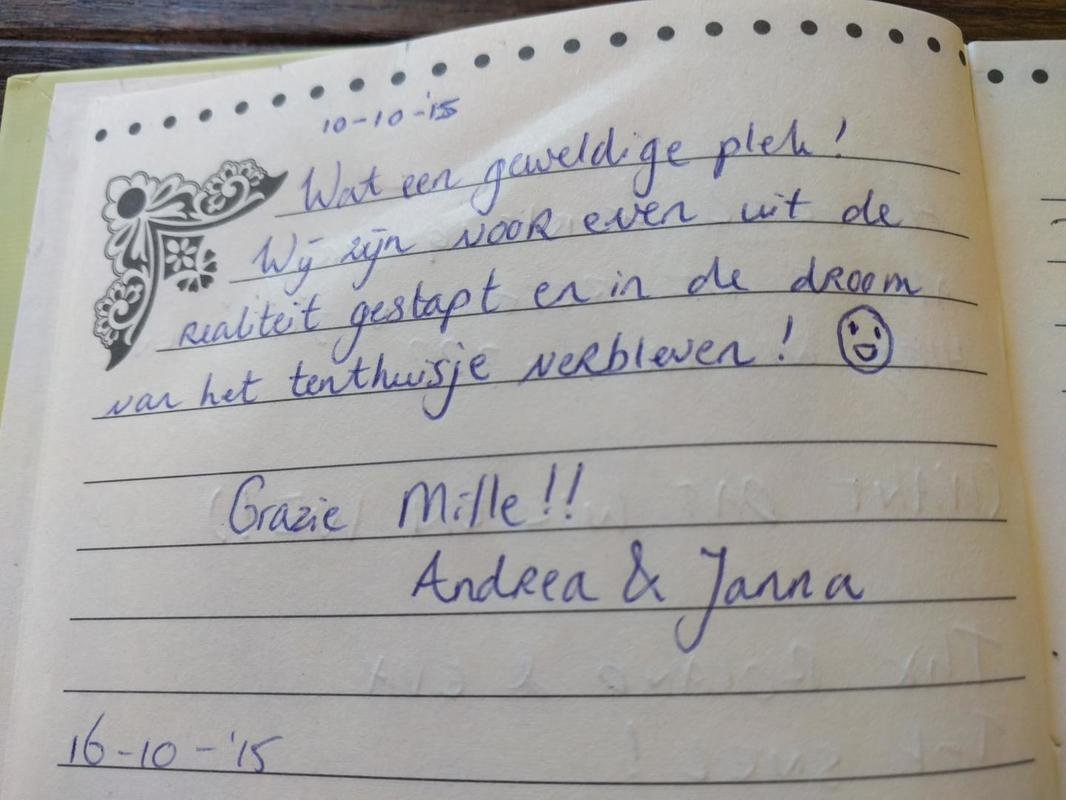 10-10-'15
Wat een geweldige plek!
Wij zijn voor even uit de
realiteit gestapt en in de droom
van het tenthuisje verbleven!
Grazie Mille!!
Andrea & Janna
16-10-'15